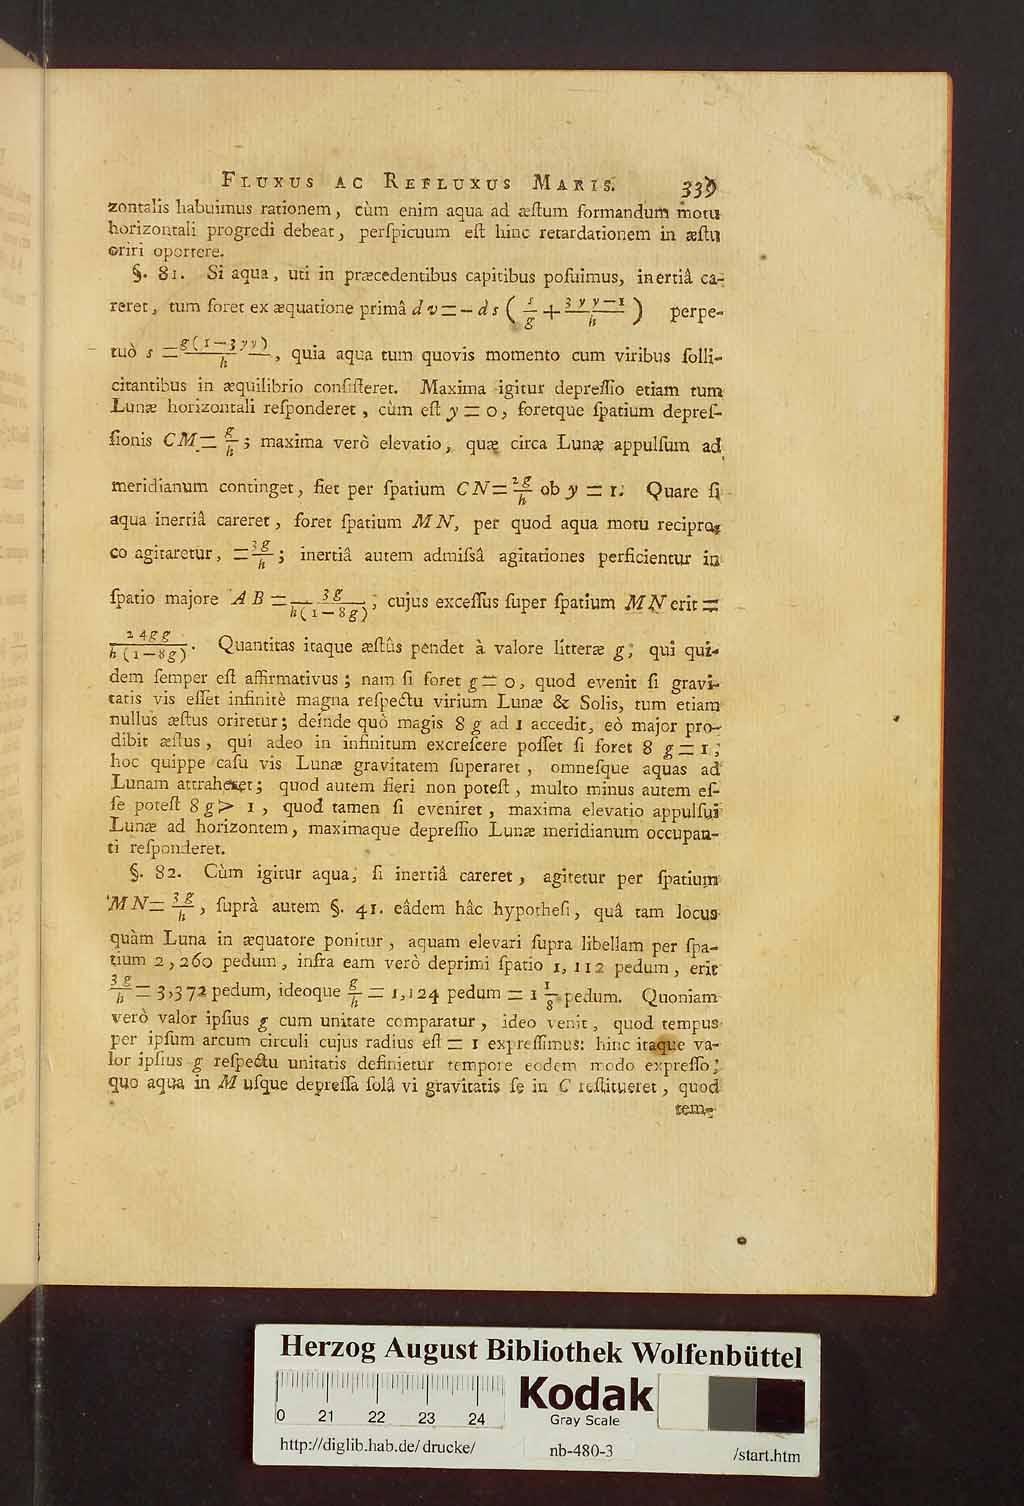 FLUXUS AC REFLUXUS MARIS. 339
zontalis habuimus rationem, cùm enim aqua ad æſtum formandum motu
horizontali progredi debeat, perſpicuum eſt hinc retardationem in æſtu
oriri oportere.
§. 81. Si aqua, uti in præcedentibus capitibus poſuimus, inertiâ ca-
reret, tum foret ex æquatione primâ dv = − ds (s/g + (3yy−1)/h) perpe-
tuò s = g(1−3yy)/h, quia aqua tum quovis momento cum viribus ſolli-
citantibus in æquilibrio conſiſteret. Maxima igitur depreſſio etiam tum
Lunæ horizontali reſponderet, cùm eſt y = 0, foretque ſpatium depreſ-
ſionis CM = g/h; maxima verò elevatio, quæ circa Lunæ appulſum ad
meridianum continget, fiet per ſpatium CN = 2g/h ob y = 1. Quare ſi
aqua inertiâ careret, foret ſpatium MN, per quod aqua motu recipro-
co agitaretur, = 3g/h; inertiâ autem admiſsâ agitationes perficientur in
ſpatio majore AB = 3g/h(1−8g), cujus exceſſus ſuper ſpatium MN erit =
24gg/h(1−8g). Quantitas itaque æſtûs pendet à valore litteræ g, qui qui-
dem ſemper eſt affirmativus; nam ſi foret g = 0, quod evenit ſi gravi-
tatis vis eſſet infinitè magna reſpectu virium Lunæ & Solis, tum etiam
nullus æſtus oriretur; deinde quò magis 8 g ad 1 accedit, eò major pro-
dibit æſtus, qui adeo in infinitum excreſcere poſſet ſi foret 8 g = 1;
hoc quippe caſu vis Lunæ gravitatem ſuperaret, omneſque aquas ad
Lunam attraheret; quod autem fieri non poteſt, multo minus autem eſ-
ſe poteſt 8 g > 1, quod tamen ſi eveniret, maxima elevatio appulſui
Lunæ ad horizontem, maximaque depreſſio Lunæ meridianum occupan-
ti reſponderet.
§. 82. Cùm igitur aqua, ſi inertiâ careret, agitetur per ſpatium
MN = 3g/h, ſuprà autem §. 41. eâdem hâc hypotheſi, quâ tam locus
quàm Luna in æquatore ponitur, aquam elevari ſupra libellam per ſpa-
tium 2,260 pedum, infra eam verò deprimi ſpatio 1,112 pedum, erit
3g/h = 3,372 pedum, ideoque g/h = 1,124 pedum = 1 1/8 pedum. Quoniam
verò valor ipſius g cum unitate comparatur, ideo venit, quod tempus
per ipſum arcum circuli cujus radius eſt = 1 expreſſimus: hinc itaque va-
lor ipſius g reſpectu unitatis definietur tempore eodem modo expreſſo,
quo aqua in M uſque depreſſa ſolâ vi gravitatis ſe in C reſtitueret, quod
tem-
Herzog August Bibliothek Wolfenbüttel
0 21 22 23 24
Kodak
Gray Scale
http://diglib.hab.de/drucke/ nb-480-3 /start.htm